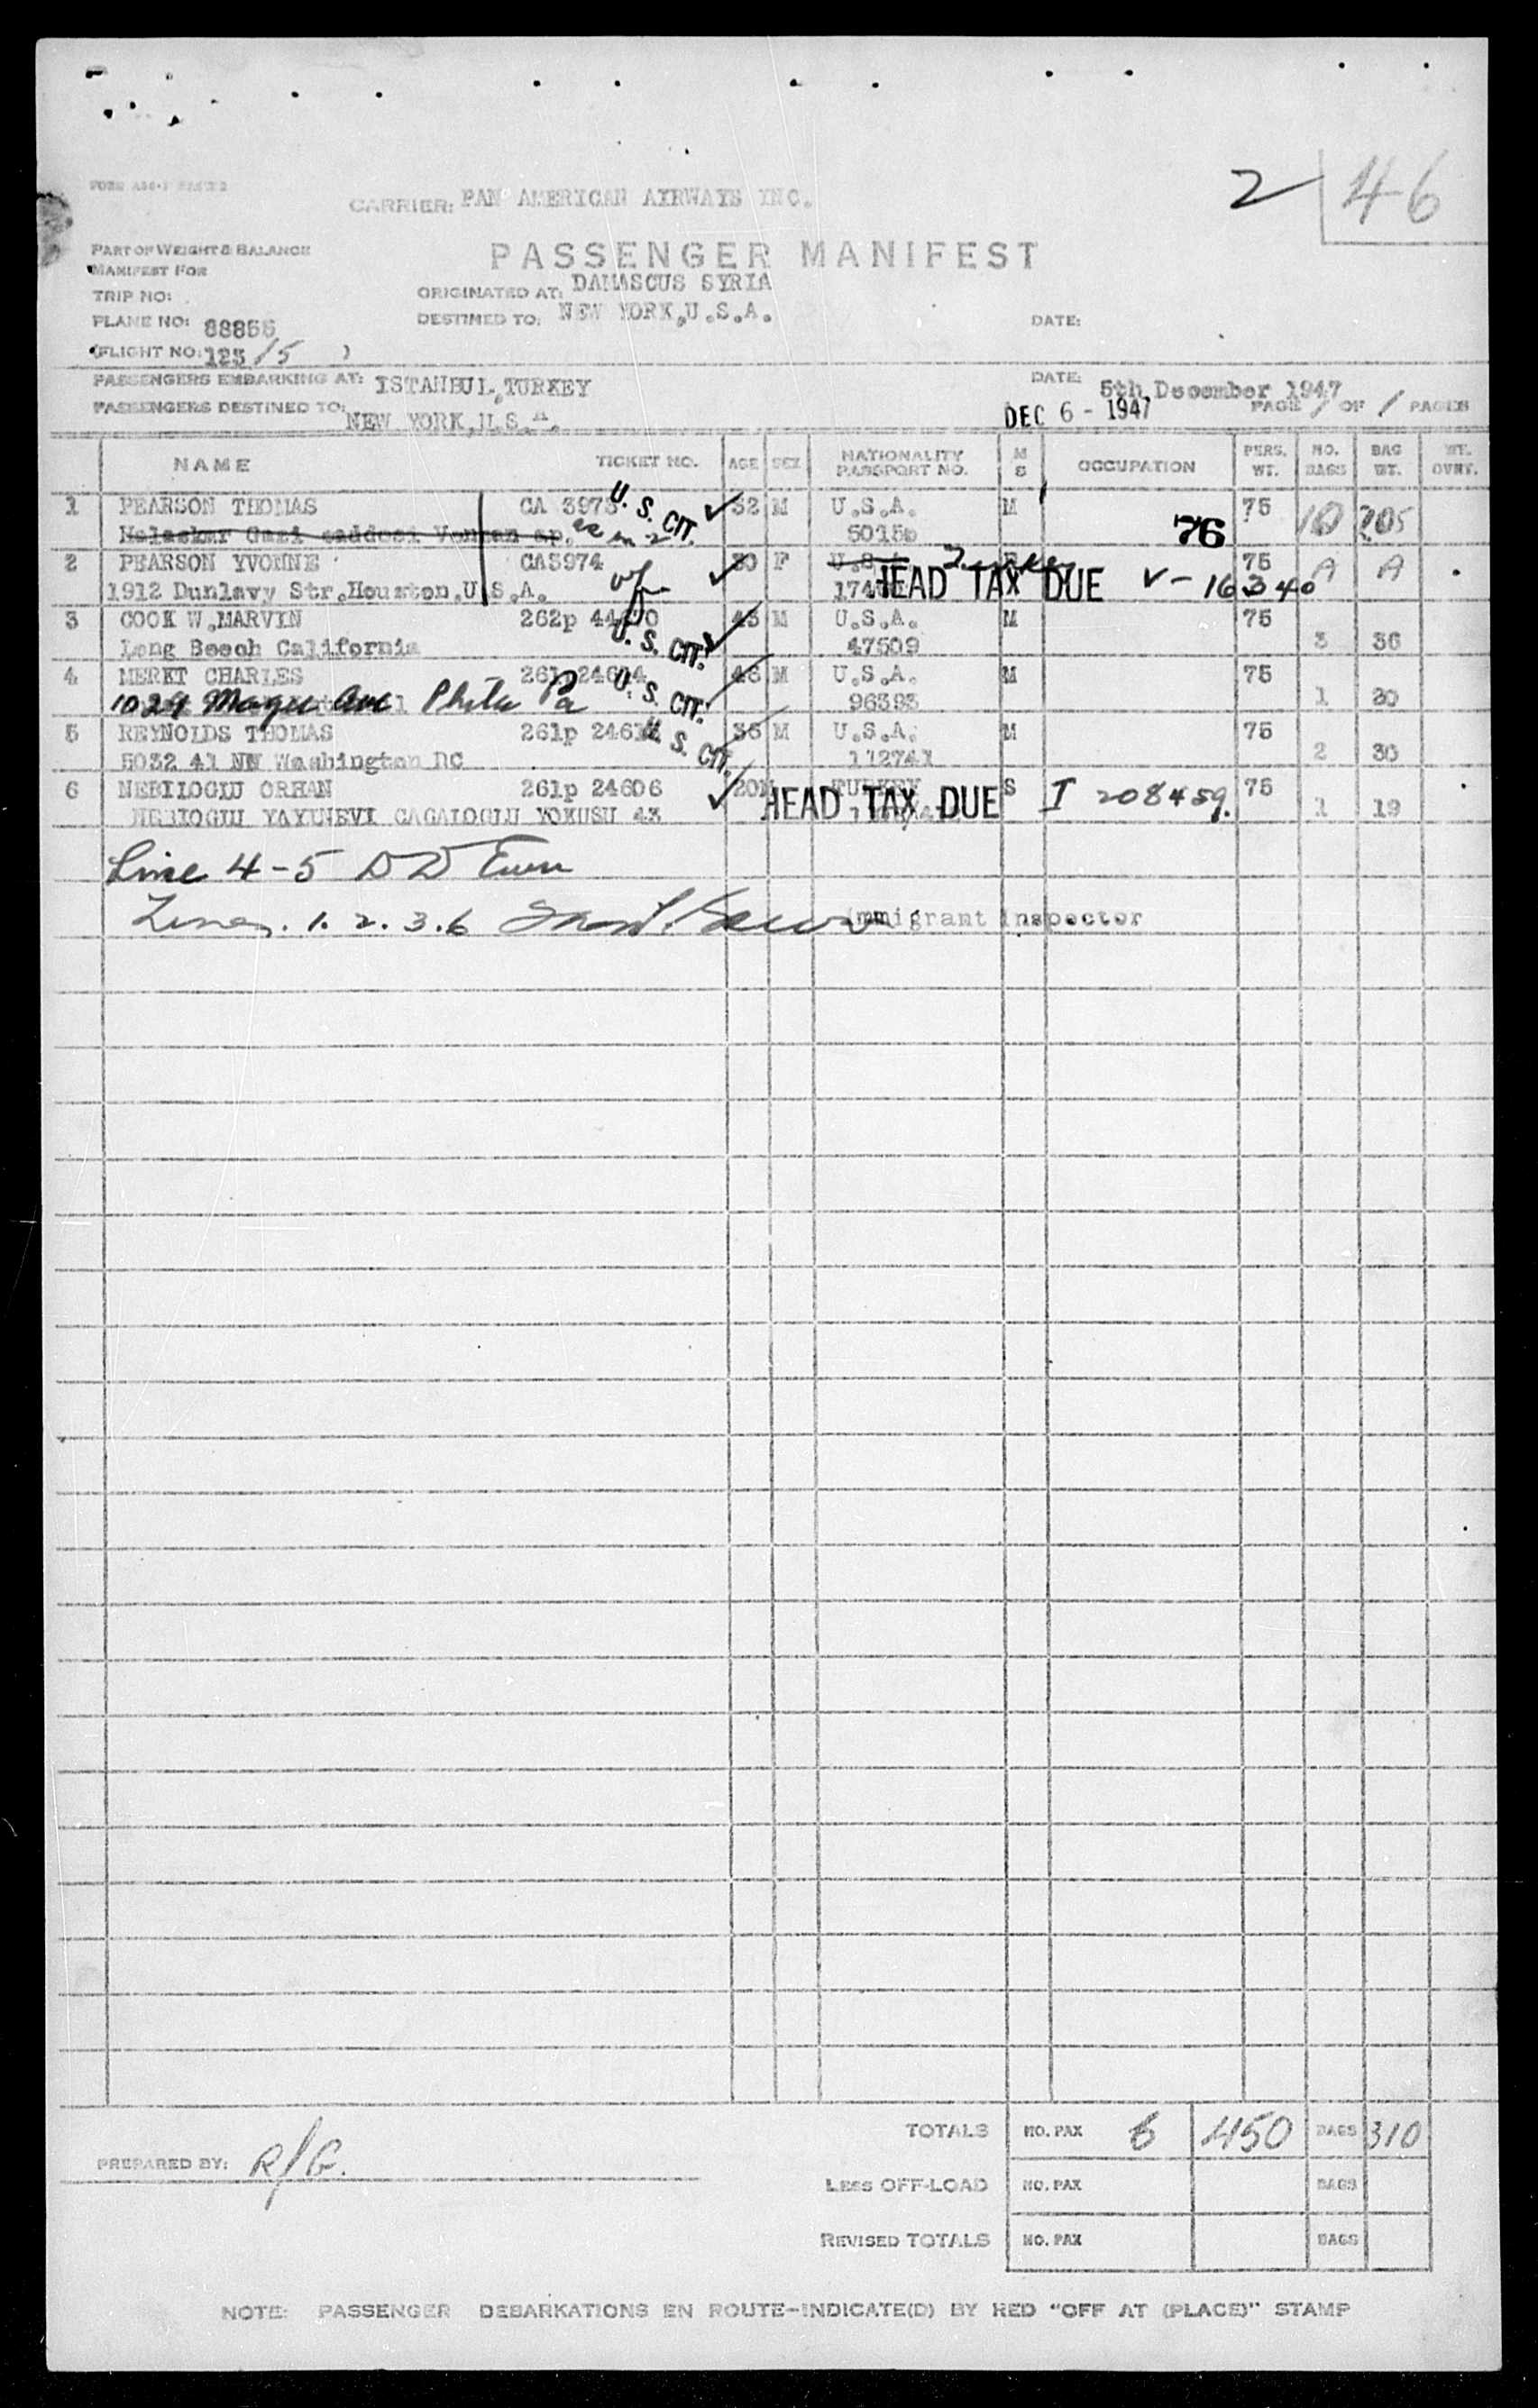 2 46
CARRIER: PAN AMERICAN AIRWAYS INC.
PART OF WEIGHT & BALANCE
MANIFEST FOR
PASSENGER MANIFEST
TRIP NO:
ORIGINATED AT: DAMASCUS SYRIA
PLANE NO: 88855
DESTINED TO: NEW YORK, U.S.A.
DATE:
(FLIGHT NO: 123/5 )
PASSENGERS EMBARKING AT: ISTANBUL, TURKEY
DATE: 5th December 1947
PASSENGERS DESTINED TO: NEW YORK, U.S.A.
DEC 6 - 1947 PAGE 1 OF 1 PAGES
NAME TICKET NO. AGE SEX NATIONALITY PASSPORT NO. M S OCCUPATION PERS. WT. NO. BAGS BAG WT. WT. OVNT.
1 PEARSON THOMAS CA 3973 U. S. CIT. 32 M U.S.A. M 75 10 205
Halaskar Gazi caddesi ap. 5015 76
2 PEARSON YVONNE CA3974 30 F U.S.A. 75 A A
1912 Dunlavy Str. Houston, U.S.A. HEAD TAX DUE V-16340
3 COOK W. MARVIN 262p U. S. CIT. 43 M U.S.A. M 75
Long Beach California 47509 3 36
4 MERKT CHARLES 261p 24604 U. S. CIT. 46 M U.S.A. M 75
1029 Ave Phila Pa 96393 1 30
5 REYNOLDS THOMAS 261p U. S. CIT. 36 M U.S.A. M 75
5032 41 NW Washington DC 112741 2 30
6 NEBILOGLU ORHAN 261p 24606 20 M TURKEY S I 208459. 75
NEBIOGLU YAYUNEVI CAGALOGLU YOKUSU 43 HEAD TAX DUE 1 19
Line 4-5
Lines. 1. 2. 3. 6 immigrant inspector
TOTALS NO. PAX 6 450 BAGS 310
PREPARED BY: R/G.
LESS OFF-LOAD NO. PAX BAGS
REVISED TOTALS NO. PAX BAGS
NOTE: PASSENGER DEBARKATIONS EN ROUTE-INDICATE(D) BY RED "OFF AT (PLACE)" STAMP